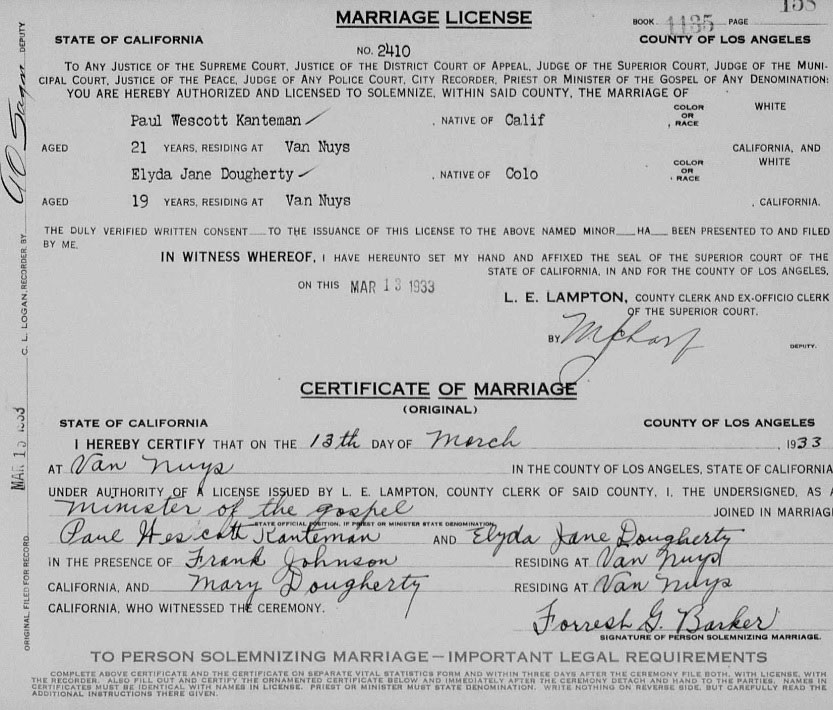 MARRIAGE LICENSE
BOOK 1135 PAGE 158
STATE OF CALIFORNIA COUNTY OF LOS ANGELES
NO. 2410
TO ANY JUSTICE OF THE SUPREME COURT, JUSTICE OF THE DISTRICT COURT OF APPEAL, JUDGE OF THE SUPERIOR COURT, JUDGE OF THE MUNI-
CIPAL COURT, JUSTICE OF THE PEACE, JUDGE OF ANY POLICE COURT, CITY RECORDER, PRIEST OR MINISTER OF THE GOSPEL OF ANY DENOMINATION:
YOU ARE HEREBY AUTHORIZED AND LICENSED TO SOLEMNIZE, WITHIN SAID COUNTY, THE MARRIAGE OF
Paul Wescott Kanteman , NATIVE OF Calif , COLOR OR RACE WHITE
AGED 21 YEARS, RESIDING AT Van Nuys CALIFORNIA, AND
Elyda Jane Dougherty , NATIVE OF Colo , COLOR OR RACE WHITE
AGED 19 YEARS, RESIDING AT Van Nuys , CALIFORNIA.
THE DULY VERIFIED WRITTEN CONSENT TO THE ISSUANCE OF THIS LICENSE TO THE ABOVE NAMED MINOR HA BEEN PRESENTED TO AND FILED
BY ME.
IN WITNESS WHEREOF, I HAVE HEREUNTO SET MY HAND AND AFFIXED THE SEAL OF THE SUPERIOR COURT OF THE
STATE OF CALIFORNIA, IN AND FOR THE COUNTY OF LOS ANGELES,
ON THIS MAR 13 1933
L. E. LAMPTON, COUNTY CLERK AND EX-OFFICIO CLERK
OF THE SUPERIOR COURT.
BY DEPUTY.
CERTIFICATE OF MARRIAGE
(ORIGINAL)
STATE OF CALIFORNIA COUNTY OF LOS ANGELES
I HEREBY CERTIFY THAT ON THE 13th DAY OF March , 1933
AT Van Nuys IN THE COUNTY OF LOS ANGELES, STATE OF CALIFORNIA
UNDER AUTHORITY OF A LICENSE ISSUED BY L. E. LAMPTON, COUNTY CLERK OF SAID COUNTY, I, THE UNDERSIGNED, AS A
Minister of the gospel JOINED IN MARRIAGE
STATE OFFICIAL POSITION, IF PRIEST OR MINISTER STATE DENOMINATION
Paul Wescott Kanteman AND Elyda Jane Dougherty
IN THE PRESENCE OF Frank Johnson RESIDING AT Van Nuys
CALIFORNIA, AND Mary Dougherty RESIDING AT Van Nuys
CALIFORNIA, WHO WITNESSED THE CEREMONY.
Forrest G. Barker
SIGNATURE OF PERSON SOLEMNIZING MARRIAGE.
TO PERSON SOLEMNIZING MARRIAGE—IMPORTANT LEGAL REQUIREMENTS
COMPLETE ABOVE CERTIFICATE AND THE CERTIFICATE ON SEPARATE VITAL STATISTICS FORM AND WITHIN THREE DAYS AFTER THE CEREMONY FILE BOTH, WITH LICENSE, WITH
THE RECORDER. ALSO FILL OUT AND CERTIFY THE ORNAMENTED CERTIFICATE BELOW AND IMMEDIATELY AFTER THE CEREMONY DETACH AND HAND TO THE PARTIES. NAMES IN
CERTIFICATES MUST BE IDENTICAL WITH NAMES IN LICENSE. PRIEST OR MINISTER MUST STATE DENOMINATION. WRITE NOTHING ON REVERSE SIDE, BUT CAREFULLY READ THE
ADDITIONAL INSTRUCTIONS THERE GIVEN.
ORIGINAL FILED FOR RECORD. MAR 15 1933 C. L. LOGAN, RECORDER, BY DEPUTY